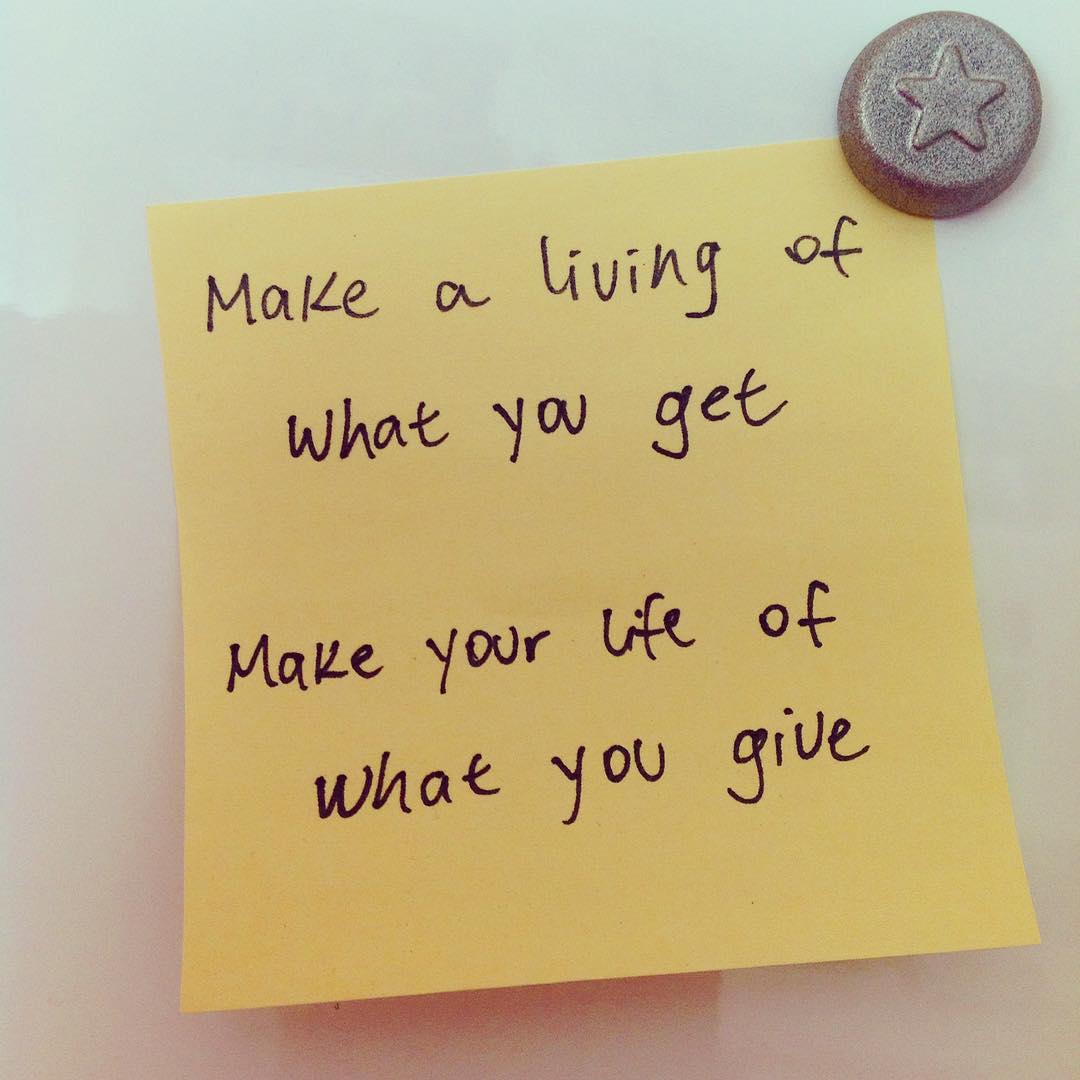 Make a living of
What you get
Make your life of
What you give